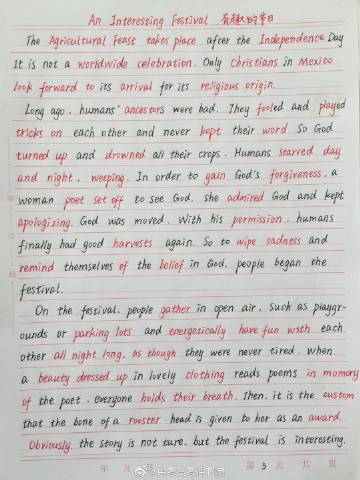 An Interesting Festival 有趣的节日
The Agricultural Feast takes place after the Independence Day
It is not a worldwide celebration. Only Christians in Mexico
look forward to its arrival for its religious origin.
Long ago, humans' ancestors were bad. They fooled and played
tricks on each other and never kept their word. So God
turned up and drowned all their crops. Humans starved day
and night, weeping. In order to gain God's forgiveness, a
woman poet set off to see God, she admired God and kept
apologizing. God was moved. With his permission, humans
finally had good harvests again. So to wipe sadness and
remind themselves of the belief in God, people began the
festival.
On the festival, people gather in open air, such as playgr-
ounds or parking lots, and energetically have fun with each
other all night long, as though they were never tired. When
a beauty dressed up in lovely clothing reads poems in momory
of the poet, everyone holds their breath. Then, it is the custom
that the bone of a rooster head is given to her as an award.
Obviously, the story is not ture, but the festival is interesting.
年 月 第 3 页 共 页